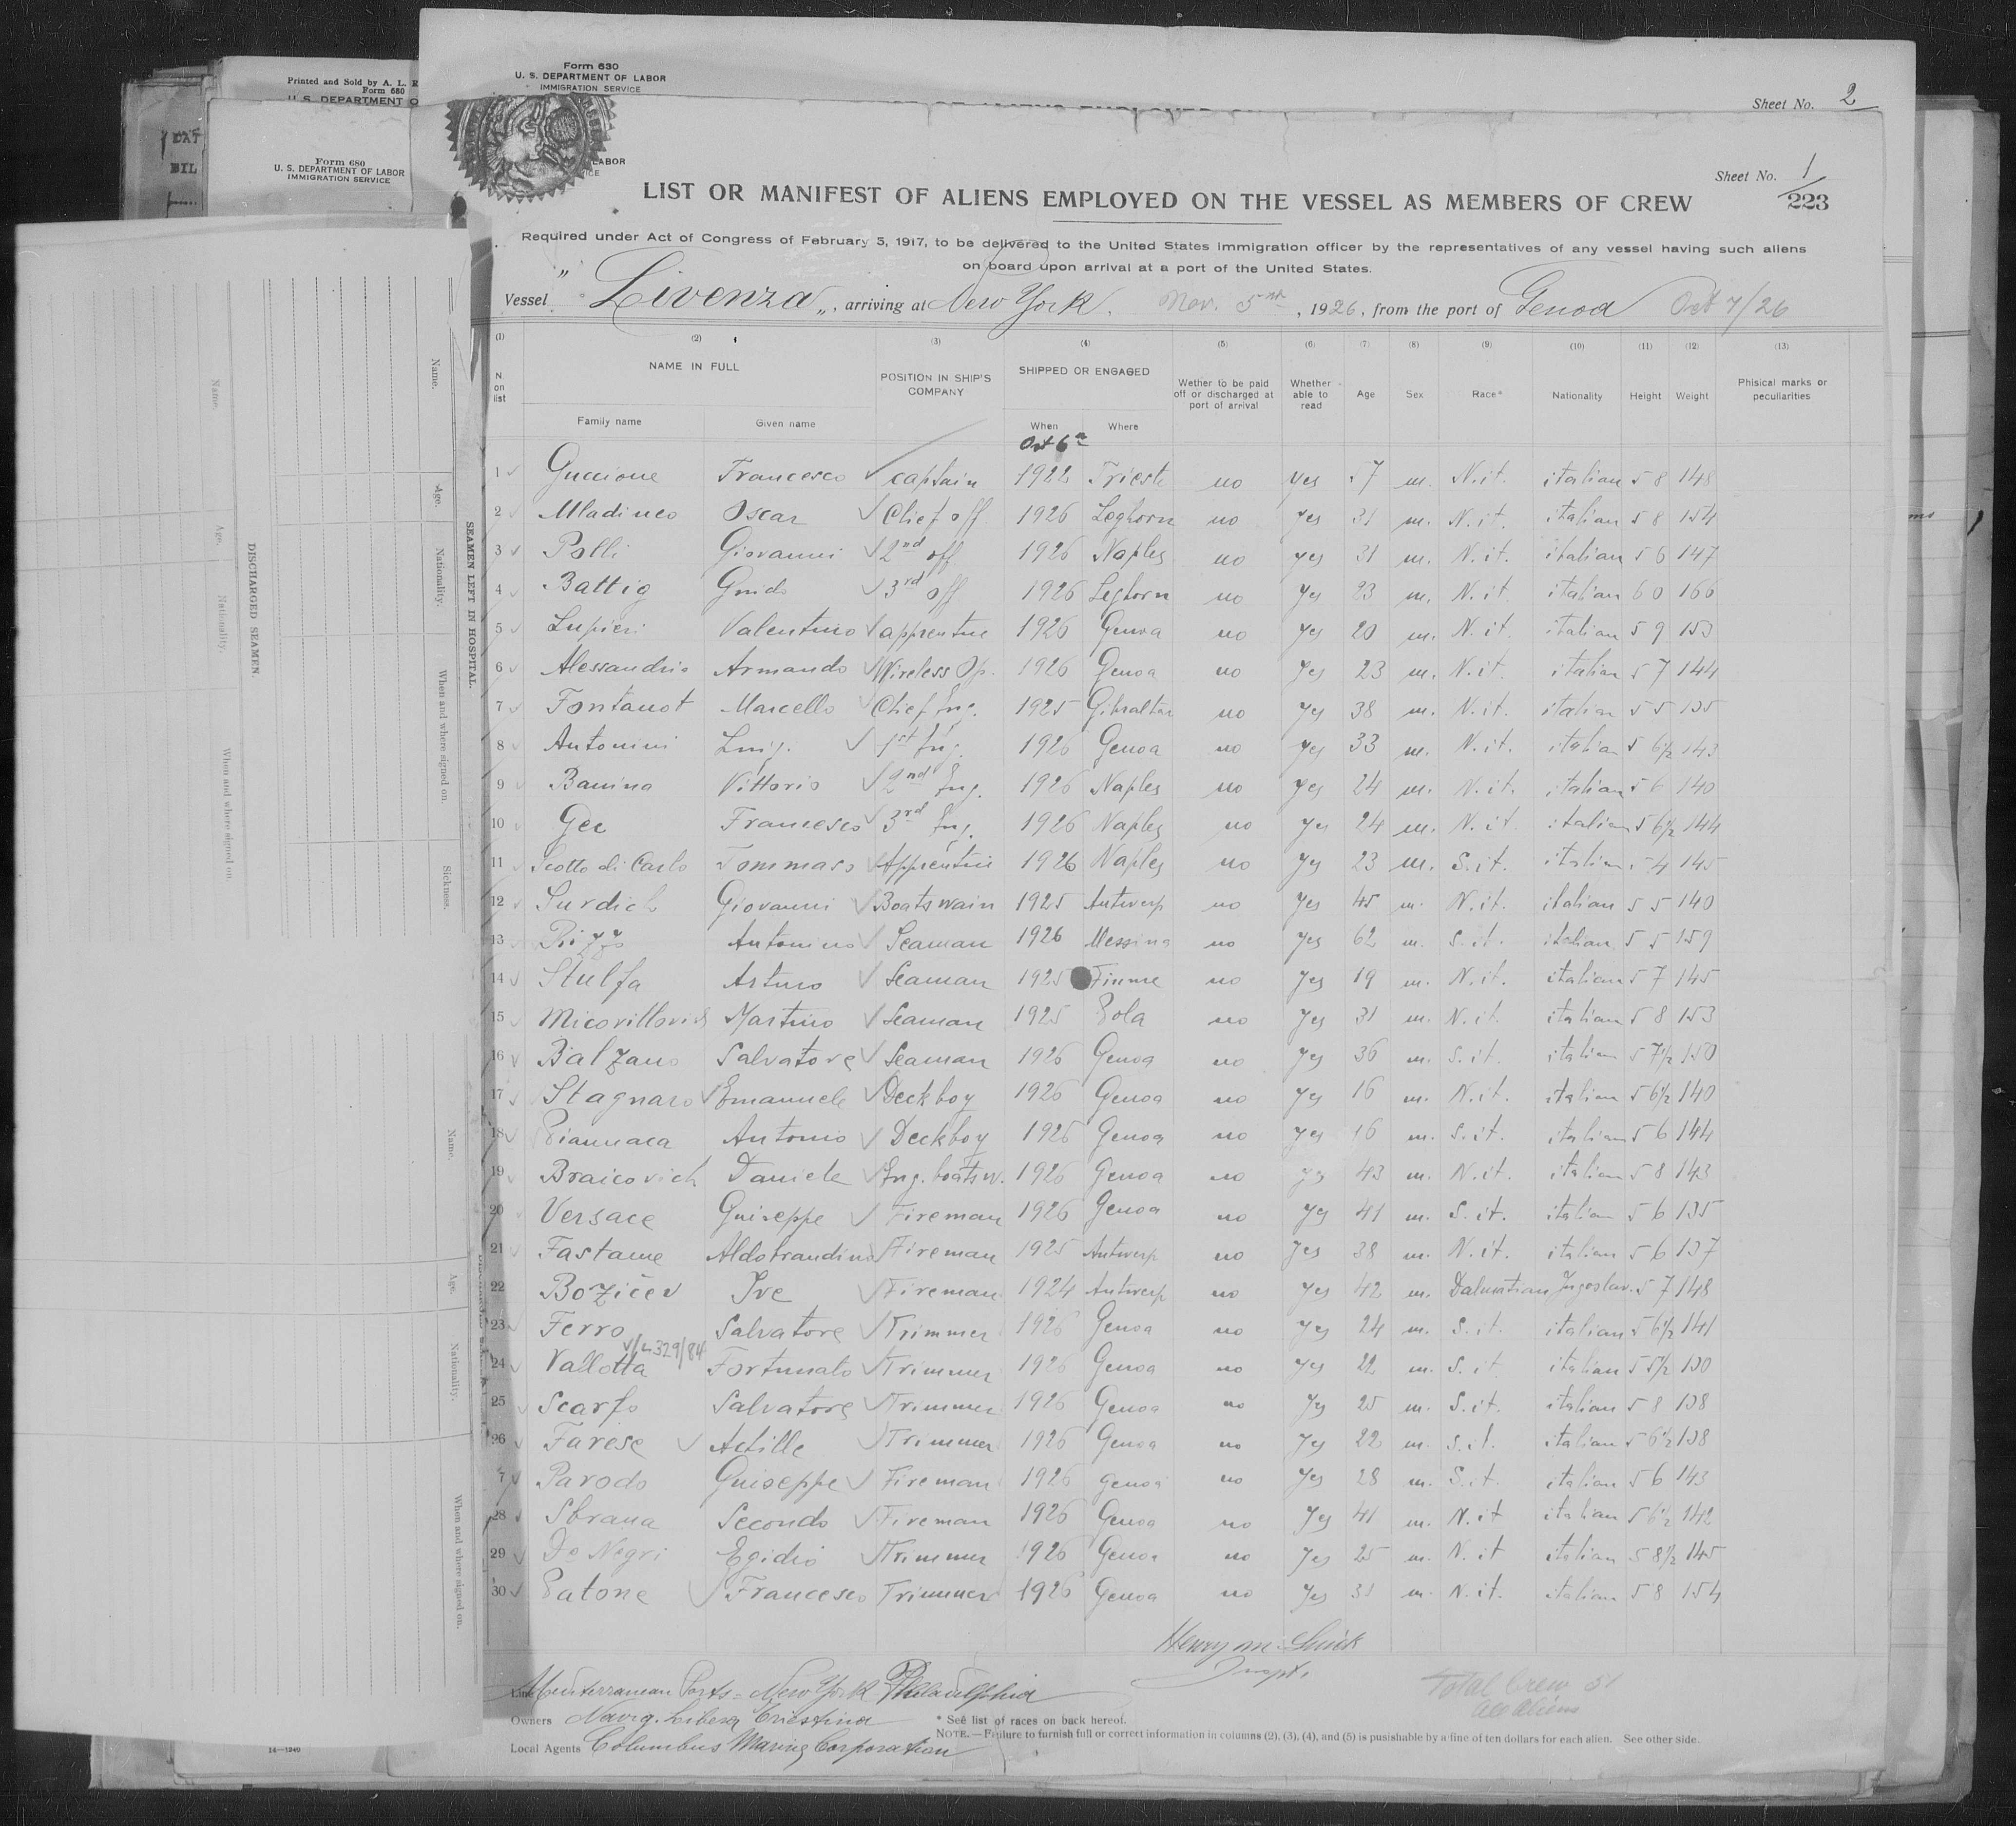 Printed and Sold by A. L. R
Form 680
U. S. DEPARTMENT O
DAT
BIL
Form 680
U. S. DEPARTMENT OF LABOR
IMMIGRATION SERVICE
Form 630
U. S. DEPARTMENT OF LABOR
IMMIGRATION SERVICE
Sheet No. 2
LABOR
ICE
Sheet No. 1/223
LIST OR MANIFEST OF ALIENS EMPLOYED ON THE VESSEL AS MEMBERS OF CREW
Required under Act of Congress of February 5, 1917, to be delivered to the United States immigration officer by the representatives of any vessel having such aliens
on board upon arrival at a port of the United States.
Vessel "Livenza", arriving at New York. Nov. 5th, 1926, from the port of Genoa Oct 7/26
(1) (2) (3) (4) (5) (6) (7) (8) (9) (10) (11) (12) (13)
N on list NAME IN FULL Family name Given name POSITION IN SHIP'S COMPANY SHIPPED OR ENGAGED When Where Wether to be paid off or discharged at port of arrival Whether able to read Age Sex Race* Nationality Height Weight Phisical marks or peculiarities
Oct 6th
1 Guccione Francesco captain 1922 Trieste no yes 57 m. N. it. italian 5 8 148
2 Mladineo Oscar Chief off 1926 Leghorn no yes 31 m. N. it. italian 5 8 154
3 Polli Giovanni 2nd off 1926 Naples no yes 31 m. N. it. italian 5 6 147
4 Battig Guido 3rd off 1926 Leghorn no yes 23 m. N. it. italian 6 0 166
5 Lupieri Valentino apprentice 1926 Genoa no yes 20 m. N. it. italian 5 9 153
6 Alessandrio Armando Wireless Op. 1926 Genoa no yes 23 m. N. it. italian 5 7 144
7 Fontanot Marcello Chief Eng. 1925 Gibraltar no yes 38 m. N. it. italian 5 5 135
8 Antonini Luigi 1st Eng. 1926 Genoa no yes 33 m. N. it. italian 5 6½ 143
9 Banina Vittorio 2nd Eng. 1926 Naples no yes 24 m. N. it. italian 5 6 140
10 Gec Francesco 3rd Eng. 1926 Naples no yes 24 m. N. it. italian 5 6½ 144
11 Scotto di Carlo Tommaso Apprentice 1926 Naples no yes 23 m. S. it. italian 5 4 145
12 Surdich Giovanni Boatswain 1925 Antwerp no yes 45 m. N. it. italian 5 5 140
13 Rizzo Antonino Seaman 1926 Messina no yes 62 m. S. it. italian 5 5 159
14 Stulfa Arturo Seaman 1925 Fiume no yes 19 m. N. it. italian 5 7 145
15 Micovillovich Martino Seaman 1925 Pola no yes 31 m. N. it. italian 5 8 153
16 Balzano Salvatore Seaman 1926 Genoa no yes 36 m. S. it. italian 5 7½ 150
17 Stagnaro Emanuele Deckboy 1926 Genoa no yes 16 m. N. it. italian 5 6½ 140
18 Piannaca Antonio Deckboy 1926 Genoa no yes 16 m. S. it. italian 5 6 144
19 Braicovich Daniele Eng. boatsw. 1926 Genoa no yes 43 m. N. it. italian 5 8 143
20 Versace Guiseppe Fireman 1926 Genoa no yes 41 m. S. it. italian 5 6 135
21 Fastame Aldobrandino Fireman 1925 Antwerp no yes 38 m. N. it. italian 5 6 137
22 Božičev Ive Fireman 1924 Antwerp no yes 42 m. Dalmatian Jugoslav. 5 7 148
23 Ferro Salvatore Trimmer 1926 Genoa no yes 24 m. S. it. italian 5 6½ 141
V/L 329/84
24 Vallotta Fortunato Trimmer 1926 Genoa no yes 22 m. S. it italian 5 5½ 130
25 Scarfo Salvatore Trimmer 1926 Genoa no yes 25 m. S. it. italian 5 8 138
26 Farese Achille Trimmer 1926 Genoa no yes 22 m. S. it. italian 5 6½ 138
7 Parodo Guiseppe Fireman 1926 Genoa no yes 28 m. S. it. italian 5 6 143
28 Sbrana Secondo Fireman 1926 Genoa no yes 41 m. N. it italian 5 6½ 142
29 De Negri Egidio Trimmer 1926 Genoa no yes 25 m. N. it italian 5 8½ 145
30 Patone Francesco Trimmer 1926 Genoa no yes 31 m. N. it. italian 5 8 154
Inspt.
Line Mediterranean Ports = New York Philadelphia
Total Crew 31
all aliens
Owners Navig. Libera Triestina
* See list of races on back hereof.
NOTE.—Failure to furnish full or correct information in columns (2), (3), (4), and (5) is punishable by a fine of ten dollars for each alien. See other side.
Local Agents Columbus Marine Corporation
14—1240
SEAMEN LEFT IN HOSPITAL.
Name. Age. Nationality. When and where signed on. Sickness.
DISCHARGED SEAMEN.
Name. Age. Nationality. When and where signed on.
Name. Age. Nationality. When and where signed on.